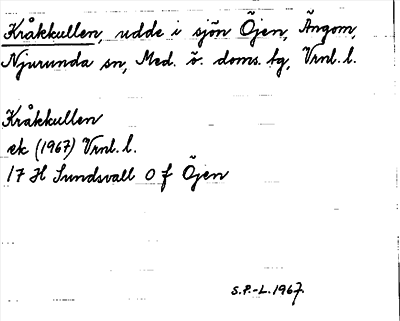 Kråkkullen, udde i sjön Öjen, Ängom,
Njurunda sn, Med. ö. doms. tg, Vrnl. l.
Kråkkullen
ek (1967) Vrnl. l.
17 H Sundsvall 0 f Öjen
S.P.-L. 1967